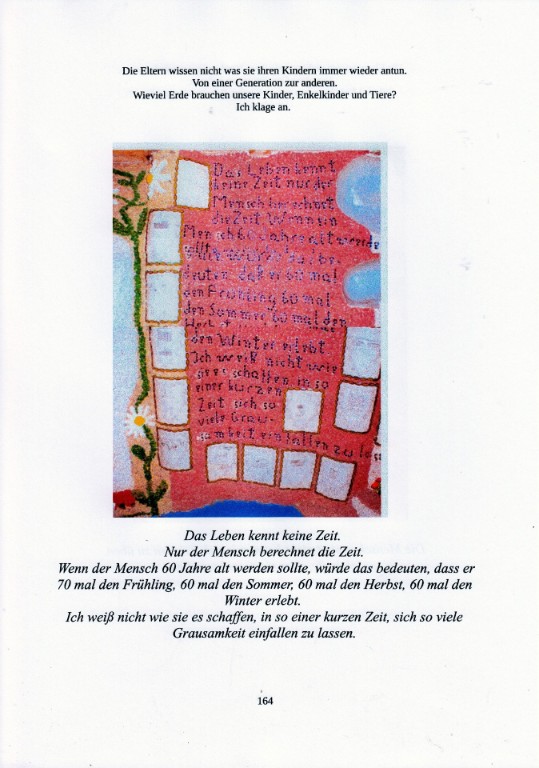 Die Eltern wissen nicht was sie ihren Kindern immer wieder antun.
Von einer Generation zur anderen.
Wieviel Erde brauchen unsere Kinder, Enkelkinder und Tiere?
Ich klage an.
Das Leben kennt
keine Zeit nur der
Mensch berechnet
die Zeit Wenn ein
Mensch 60 Jahre alt werde
sollte
deuten, daß er 60 mal
den Frühling 60 mal
den Sommer 60 mal den
Herbst
den Winter erlebt
Ich weiß nicht wie
sie es schaffen in so
einer kurzen
Zeit sich so
viele Grau-
samkeit einfallen zu
Das Leben kennt keine Zeit.
Nur der Mensch berechnet die Zeit.
Wenn der Mensch 60 Jahre alt werden sollte, würde das bedeuten, dass er
70 mal den Frühling, 60 mal den Sommer, 60 mal den Herbst, 60 mal den
Winter erlebt.
Ich weiß nicht wie sie es schaffen, in so einer kurzen Zeit, sich so viele
Grausamkeit einfallen zu lassen.
164